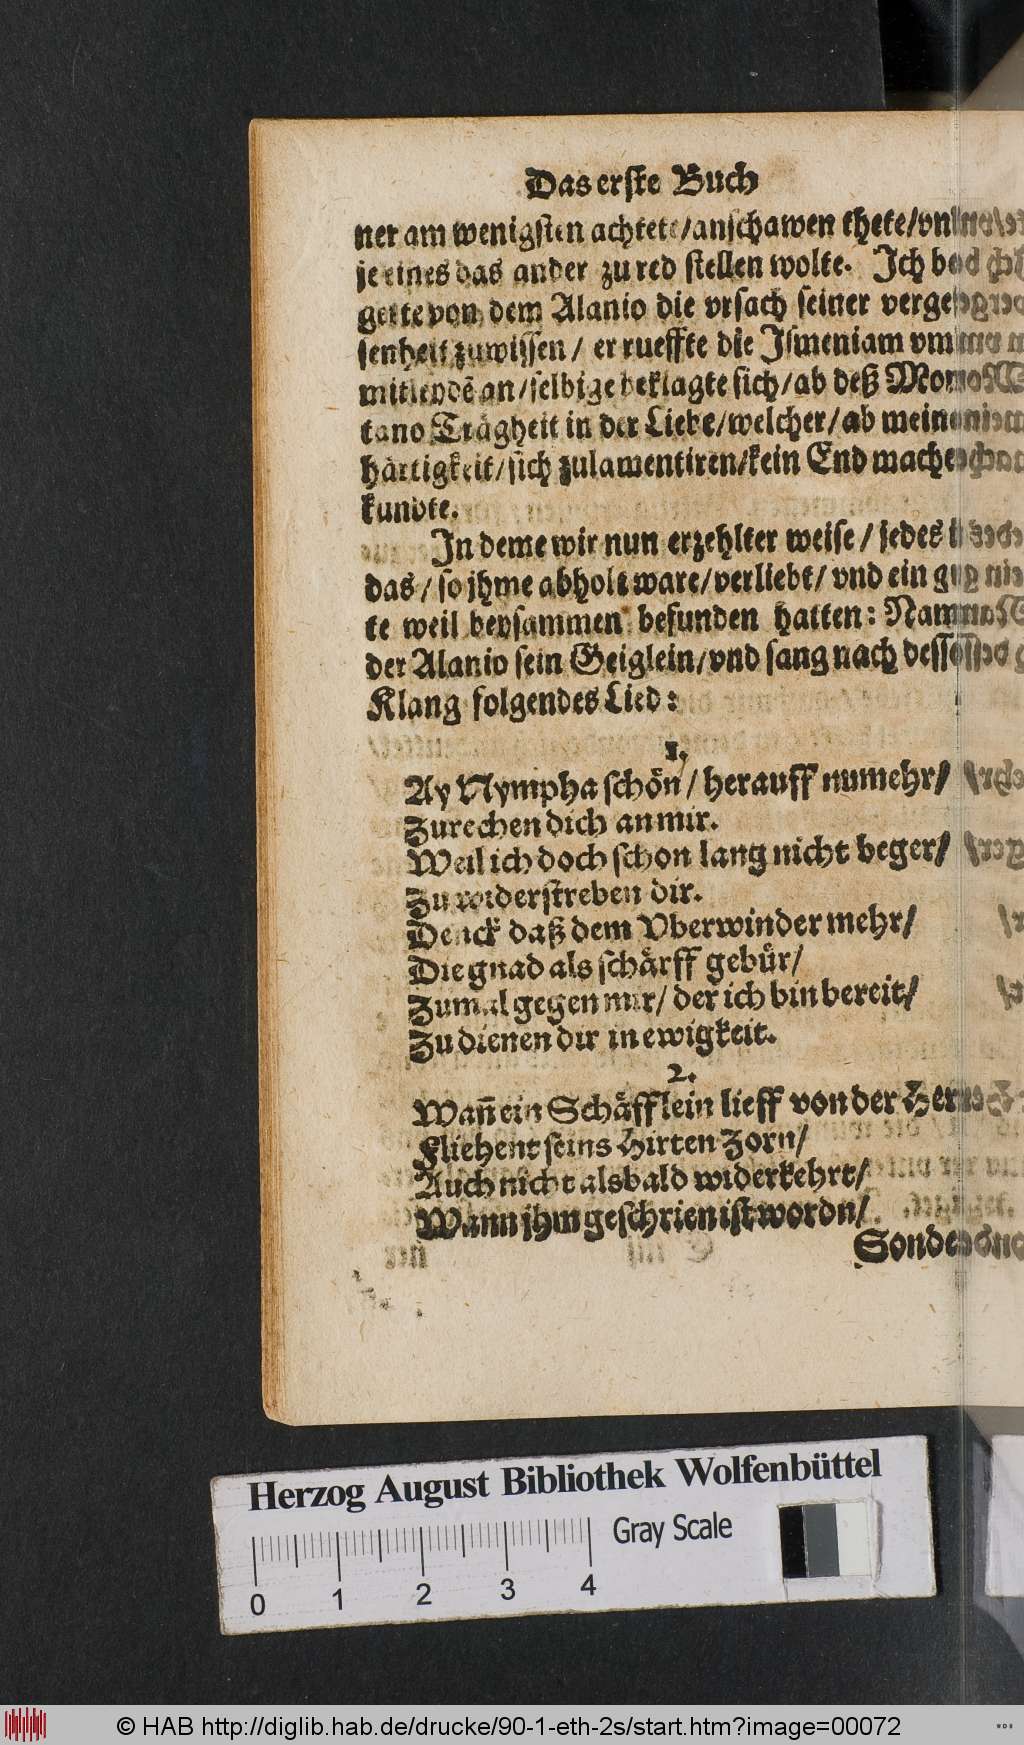 Das erste Buch
ner am wenigsten achtete/anschawen thete/vnd
je eines das ander zu red stellen wolte. Ich
gerte von dem Alanio die vrsach seiner verges
senheit zuwissen / er rueffte die Ismeniam vm
mitleydē an/selbige beklagte sich/ab deß Mon
tano Trägheit in der Liebe/welcher/ab meiner
härtigkeit/sich zulamentiren/kein End machen
kundte.
In deme wir nun erzehlter weise / jedes in
das / so jhme abholt ware/verliebt/ vnd ein gu
te weil beysammen befunden hatten: Nam
der Alanio sein Geiglein/vnd sang nach dessen
Klang folgendes Lied:
1.
Ay Nympha schön/ herauff numehr/
Zurechen dich an mir.
Weil ich doch schon lang nicht beger/
Zu widerstreben dir.
Denck daß dem Vberwinder mehr/
Die gnad als schärff gebür/
Zumal gegen mir/ der ich bin bereit/
Zu dienen dir in ewigkeit.
2.
Wañ ein Schäfflein lieff von der Herd
Fliehent seins Hirten Zorn/
Auch nicht alsbald widerkehrt/
Wann jhm geschrien ist wordn/
Sonde
Herzog August Bibliothek Wolfenbüttel
Gray Scale
0 1 2 3 4
© HAB http://diglib.hab.de/drucke/90-1-eth-2s/start.htm?image=00072